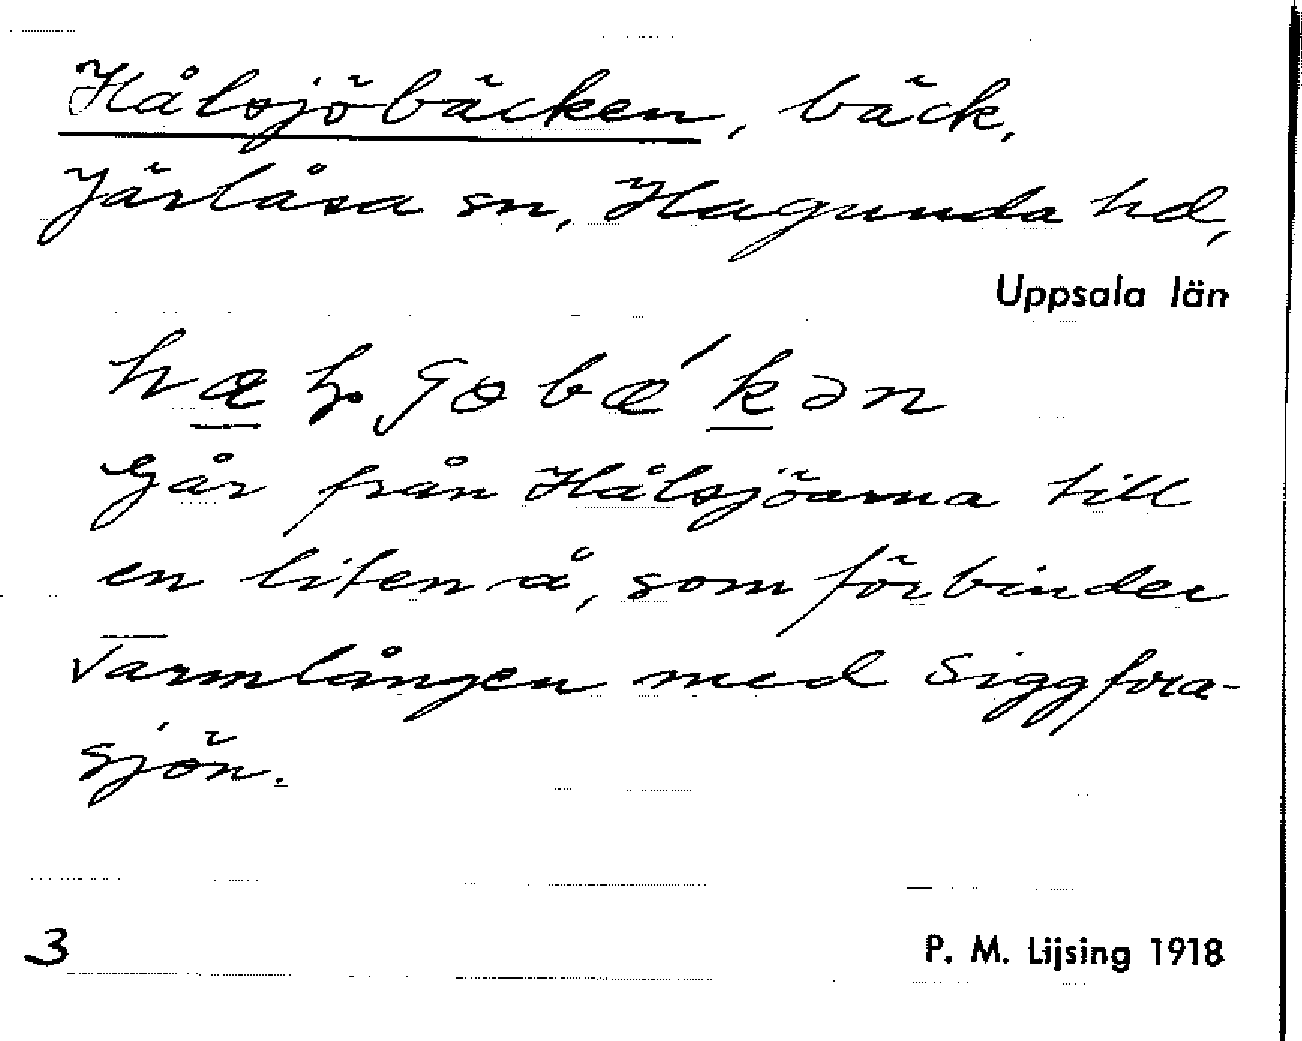 Hålsjöbäcken, bäck,
Järlåsa sn, Hagunda hd,
Uppsala län
Går från Hålsjöarna till
en liten å, som förbinder
Varmlången med Siggfora-
sjön.
3
P. M. Lijsing 1918